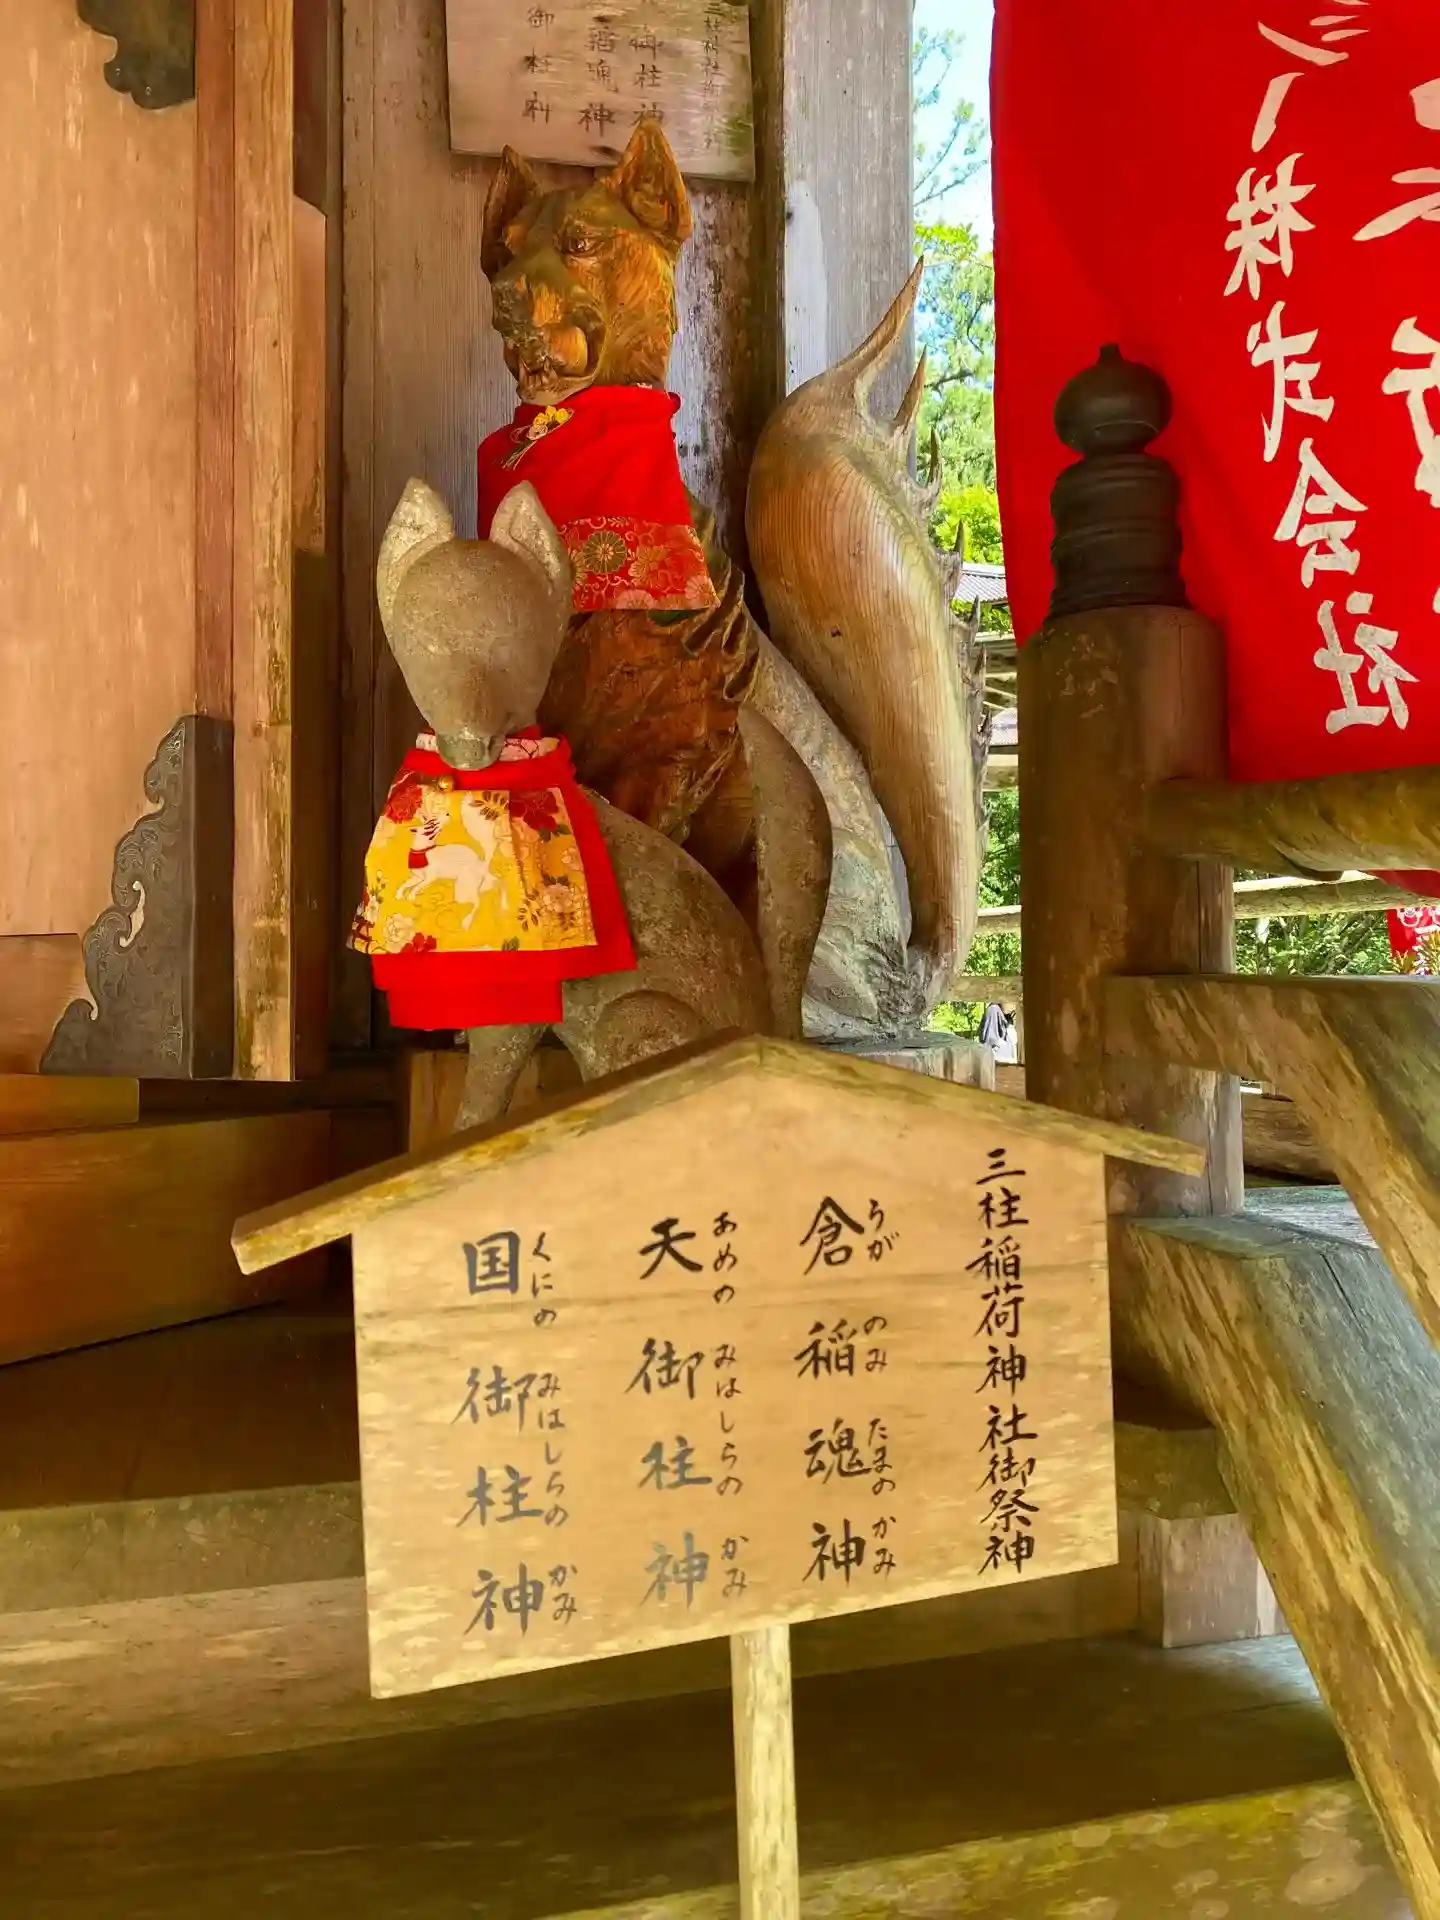 三柱稲荷神社御祭神
倉稲魂神
うがのみたまのかみ
天御柱神
あめのみはしらのかみ
国御柱神
くにのみはしらのかみ
御柱神
株式会社